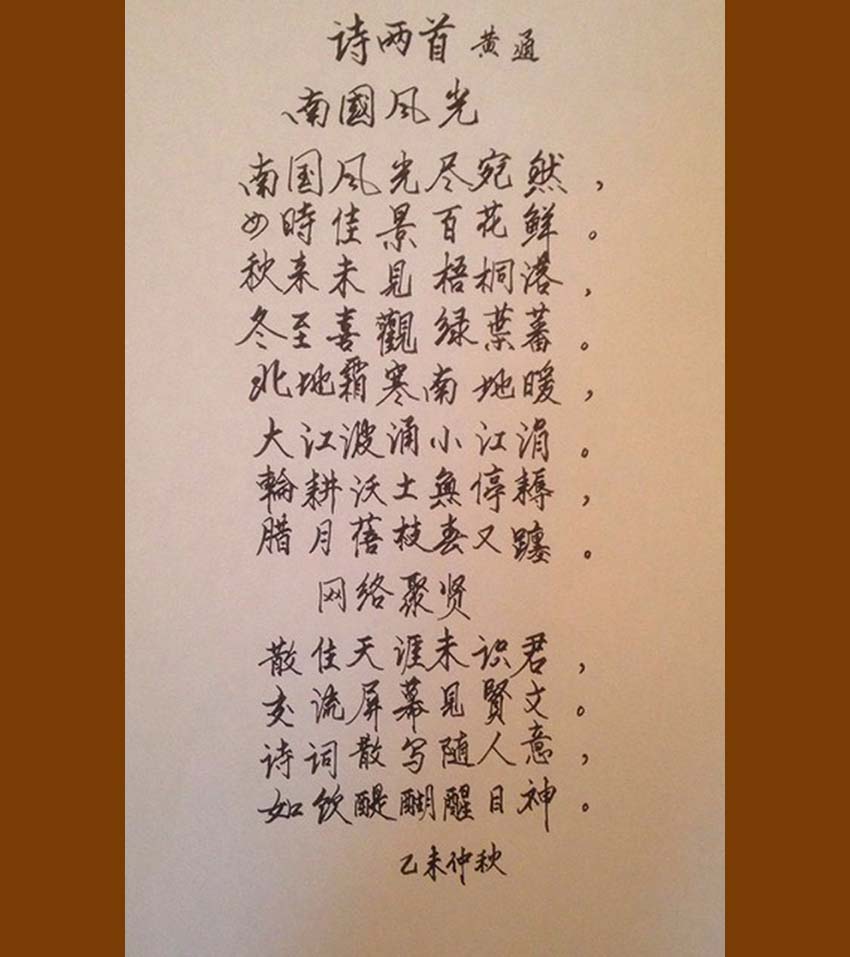 诗两首 黄通
南國风光
南国风光尽宛然，
时佳景百花鲜。
秋来未见梧桐落，
冬至喜觀绿葉蕃。
北地霜寒南地暖，
大江波涌小江涓。
輪耕沃土無停耨，
腊月蓓枝春又躔。
网络聚贤
散住天涯未识君，
交流屏幕見賢文。
诗词散写随人意，
如饮醍醐醒目神。
乙未仲秋